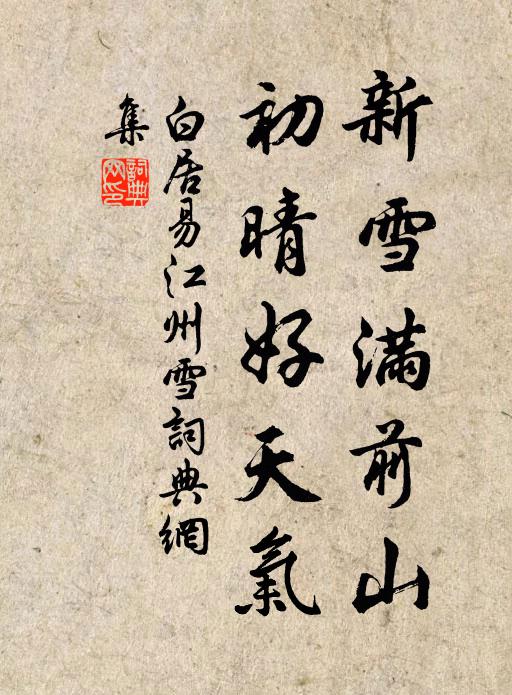 新雪满前山
初晴好天氣
白居易江州雪詞典網
集
詞典
网印